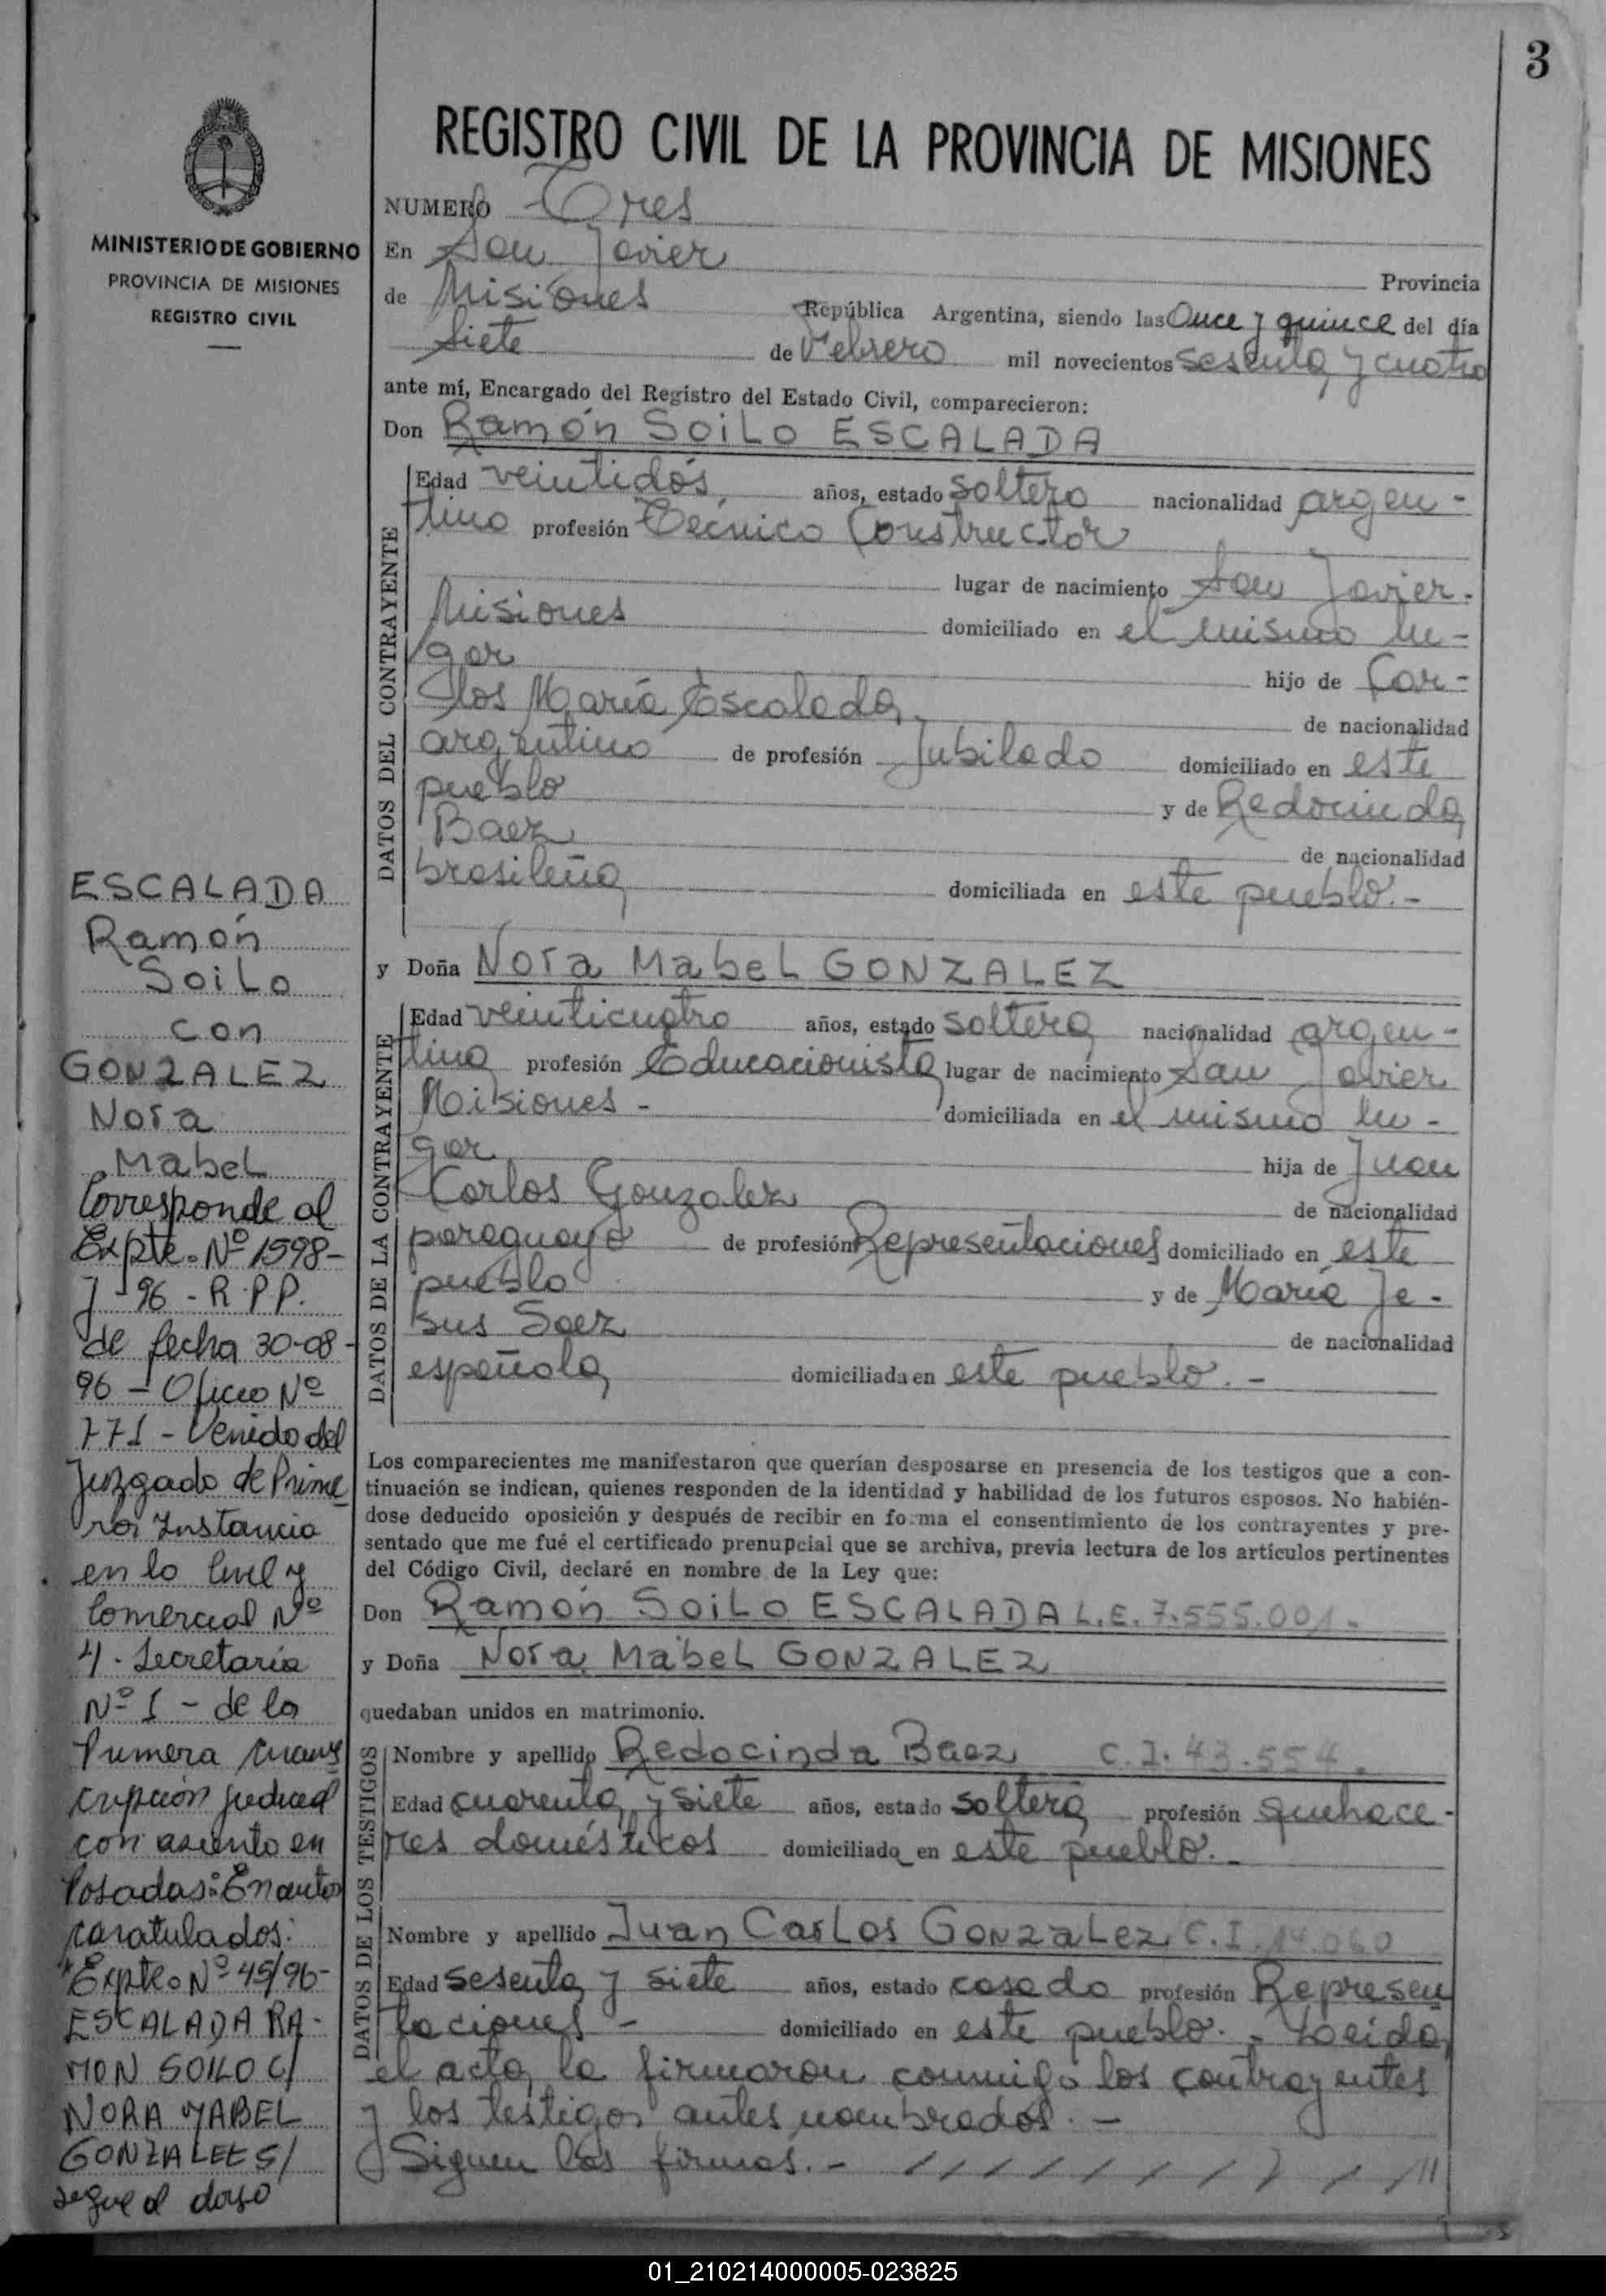 3
REGISTRO CIVIL DE LA PROVINCIA DE MISIONES
MINISTERIO DE GOBIERNO
PROVINCIA DE MISIONES
REGISTRO CIVIL
NUMERO Tres
En San Javier
Provincia
de Misiones República Argentina, siendo las Once y quince del día
Siete de Febrero mil novecientos sesenta y cuatro
ante mí, Encargado del Registro del Estado Civil, comparecieron:
Don Ramón Soilo ESCALADA
DATOS DEL CONTRAYENTE
Edad veintidós, años, estado soltero nacionalidad argen-
tino profesión Técnico Constructor
lugar de nacimiento San Javier-
Misiones domiciliado en el mismo lu-
gar hijo de Car-
los María Escalada, de nacionalidad
argentino de profesión Jubilado domiciliado en este
pueblo y de Redocinda
Baez de nacionalidad
brasileña domiciliada en este pueblo.-
y Doña Nora Mabel GONZALEZ
DATOS DE LA CONTRAYENTE
Edad veinticuatro años, estado soltera nacionalidad argen-
tina profesión Educacionista lugar de nacimiento San Javier
Misiones - domiciliada en el mismo lu-
gar hija de Juan
Carlos Gonzalez de nacionalidad
paraguayo de profesión Representaciones domiciliado en este
pueblo y de María Je-
sus Saez de nacionalidad
española domiciliada en este pueblo.-
Los comparecientes me manifestaron que querían desposarse en presencia de los testigos que a con-
tinuación se indican, quienes responden de la identidad y habilidad de los futuros esposos. No habién-
dose deducido oposición y después de recibir en forma el consentimiento de los contrayentes y pre-
sentado que me fué el certificado prenupcial que se archiva, previa lectura de los artículos pertinentes
del Código Civil, declaré en nombre de la Ley que:
Don Ramón Soilo ESCALADA L.E. 7.555.001.-
y Doña Nora Mabel GONZALEZ
quedaban unidos en matrimonio.
DATOS DE LOS TESTIGOS
Nombre y apellido Redocinda Baez C.I. 43.554.
Edad cuarenta y siete años, estado soltera profesión quehace-
res domésticos domiciliada en este pueblo.-
Nombre y apellido Juan Carlos Gonzalez C.I. 14.060
Edad sesenta y siete años, estado casado profesión Represen
taciones - domiciliado en este pueblo.- Leida
el acta la firmaron conmigo los contrayentes
y los testigos antes nombrados.-
Siguen las firmas.- / / / / / / / / / / //
ESCALADA
Ramón
Soilo
con
GONZALEZ
Nora
Mabel
Corresponde al
Expte. Nº 1598-
J-96-R.P.P.
de fecha 30-08-
96 - Oficio Nº
771 - Venido del
Juzgado de Prime
ra Instancia
en lo Civil y
Comercial Nº
4. Secretaría
Nº 1 - de la
Primera Circuns
cripción judicial
con asiento en
Posadas: En autos
caratulados:
"Expte. Nº 45/96-
ESCALADA RA-
MON SOILO C/
NORA MABEL
GONZALEZ S/
sigue al dorso
01_210214000005-023825